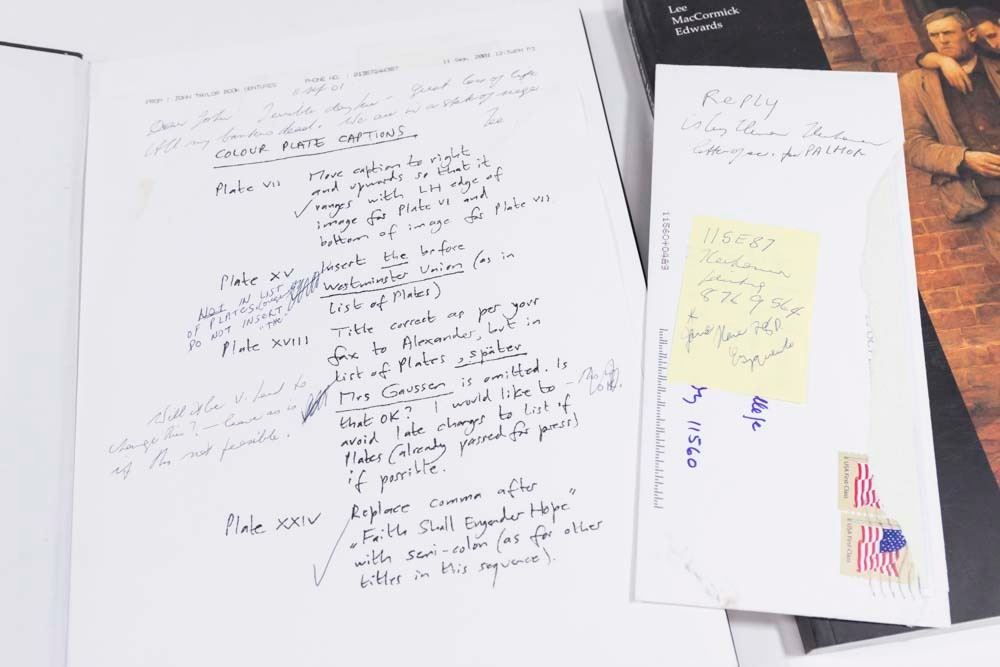 FROM : JOHN TAYLOR BOOK VENTURES PHONE NO. : 11 Sep. 2001 P1
11 Sep 01
Dear John Terrible day here - great loss of life
my bankers dead. We are in a state of
Lee
COLOUR PLATE CAPTIONS
Plate VII Move caption to right
and upwards so that it
✓ ranges with LH edge of
image for Plate VI and
bottom of image for Plate VII
Plate XV Insert the before
Westminster Union (as in
List of Plates)
NOT IN LIST
OF PLATES
DO NOT INSERT
"THE"
Plate XVIII Title correct as per your
fax to Alexander, but in
List of Plates, später
Mrs Gaussen is omitted. Is
that OK? I would like to
avoid late changes to List of
Plates (already passed for press)
if possible.
OK.
Will it be v. hard to
change this? - leave as is
if this not feasible.
Plate XXIV Replace comma after
"Faith Shall Engender Hope"
✓ with semi-colon (as for other
titles in this sequence).
Lee
MacCormick
Edwards
Reply
for PALMER
11560+0489
115E87
876 9564
*
NY 11560
USA First-Class
USA First-Class